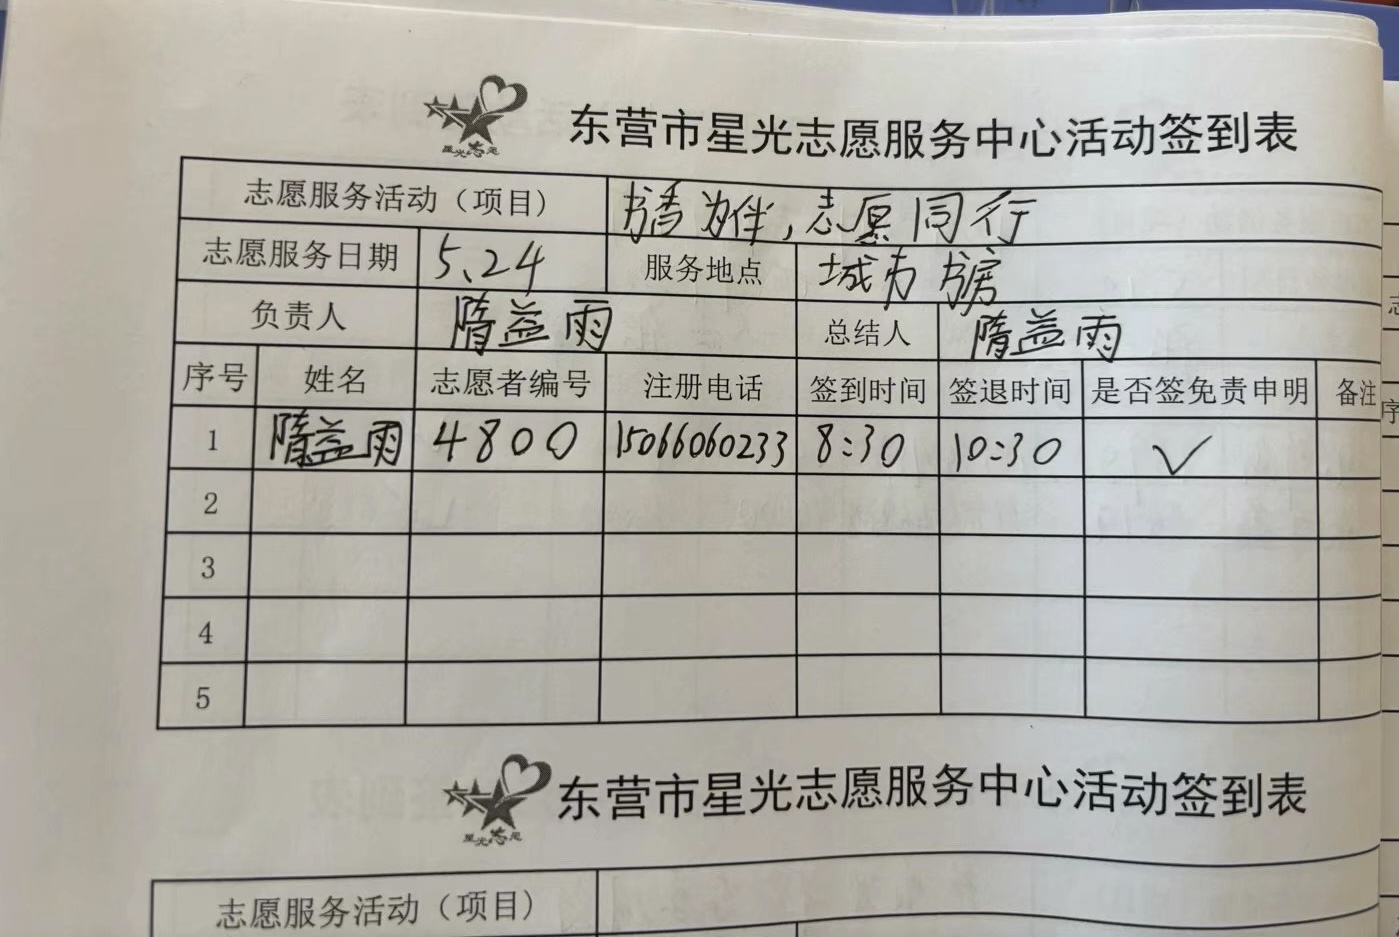 东营市星光志愿服务中心活动签到表
星光志愿
志愿服务活动（项目） 书香为伴，志愿同行
志愿服务日期 5、24 服务地点 城市书房
负责人 隋益雨 总结人 隋益雨
序号 姓名 志愿者编号 注册电话 签到时间 签退时间 是否签免责申明 备注
1 隋益雨 4800 15066060233 8:30 10:30 ✓
2
3
4
5
东营市星光志愿服务中心活动签到表
星光志愿
志愿服务活动（项目）